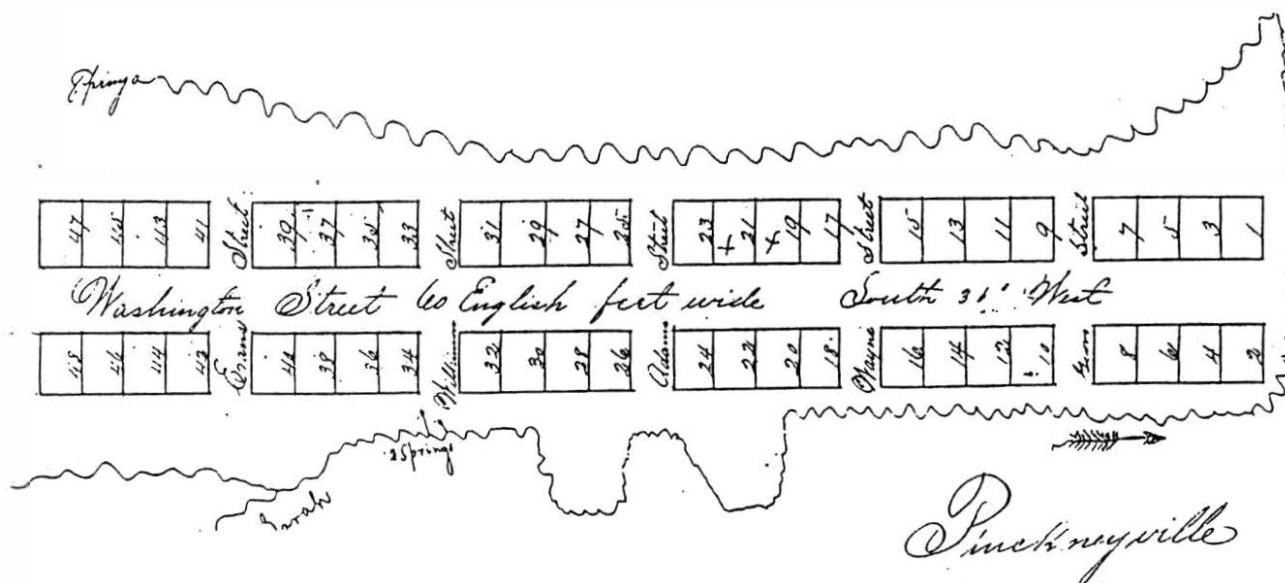 Springs
47 45 43 41 Street 39 37 35 33 Street 31 29 27 25 Street 23 21 19 17 Street 15 13 11 9 Street 7 5 3 1
Washington Street 60 English feet wide South 36° West
48 46 44 42 Evans 40 38 36 34 William 32 30 28 26 Adams 24 22 20 18 Wayne 16 14 12 10 8 6 4 2
2 Springs
Pinckneyville